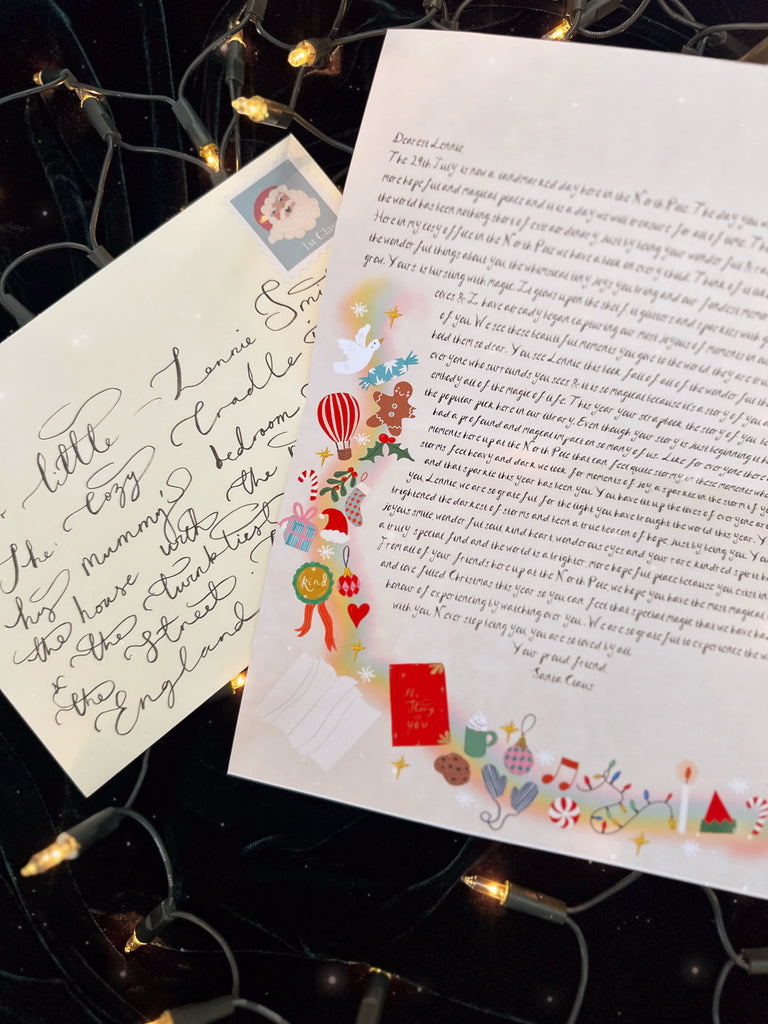 1st Clas
little Lennie Smi
The Cozy Cradle
his mummy's bedroom
the house with the
the twinkliest
the street
England
Dearest Lennie
The 29th July is now a landmarked day here in the North Pole. The day you w
more hopeful and magical place and it is a day we will treasure for all of time. The
the world has been nothing short of extraordinary just by being your wonderful
Here in my cosy office in the North Pole we have a book on every child. Think of it like
the wonderful things about you, the whimsical tiny joys you bring and our fondest memor
grow. Yours is bursting with magic. It glows upon the shelf, it glitters and sparkles with
elves & I have already began capturing our most joyous of moments in
of you. We see these beautiful moments you give to the world, they are tru
hold them so dear. You see Lennie this book full of all of the wonderful th
everyone who surrounds you sees & it is so magical because it's a story of you
embody all of the magic of life. This year your scrapbook, the story of you
the popular pick here in our library. Even though your story is just beginning it h
had a profound and magical impact on so many of us. Like for everyone there
moments here up at the North Pole that can feel quite stormy, in these moments
storms feel heavy and dark we look for moments of joy, a sparkle in the storms if y
and that sparkle this year has been you. You have lit up the lives of everyone
you Lennie, we are so grateful for the light you have brought the world this year. Y
brightened the darkest of storms and been a true beacon of hope. Just by being you. You
joyous smile, wonderful soul, kind heart, wonderous eyes and your rare kindred spirit
a truly special find and the world is a brighter, more hopeful place because you exist in
From all of your friends here up at the North Pole, we hope you have the most magical
and love filled Christmas this year so you can feel that special magic that we have ha
honour of experiencing by watching over you. We are so grateful to experience the w
with you. Never stop being you, you are so loved by all.
Your proud friend,
Santa Claus
kind
The
Story
of
you